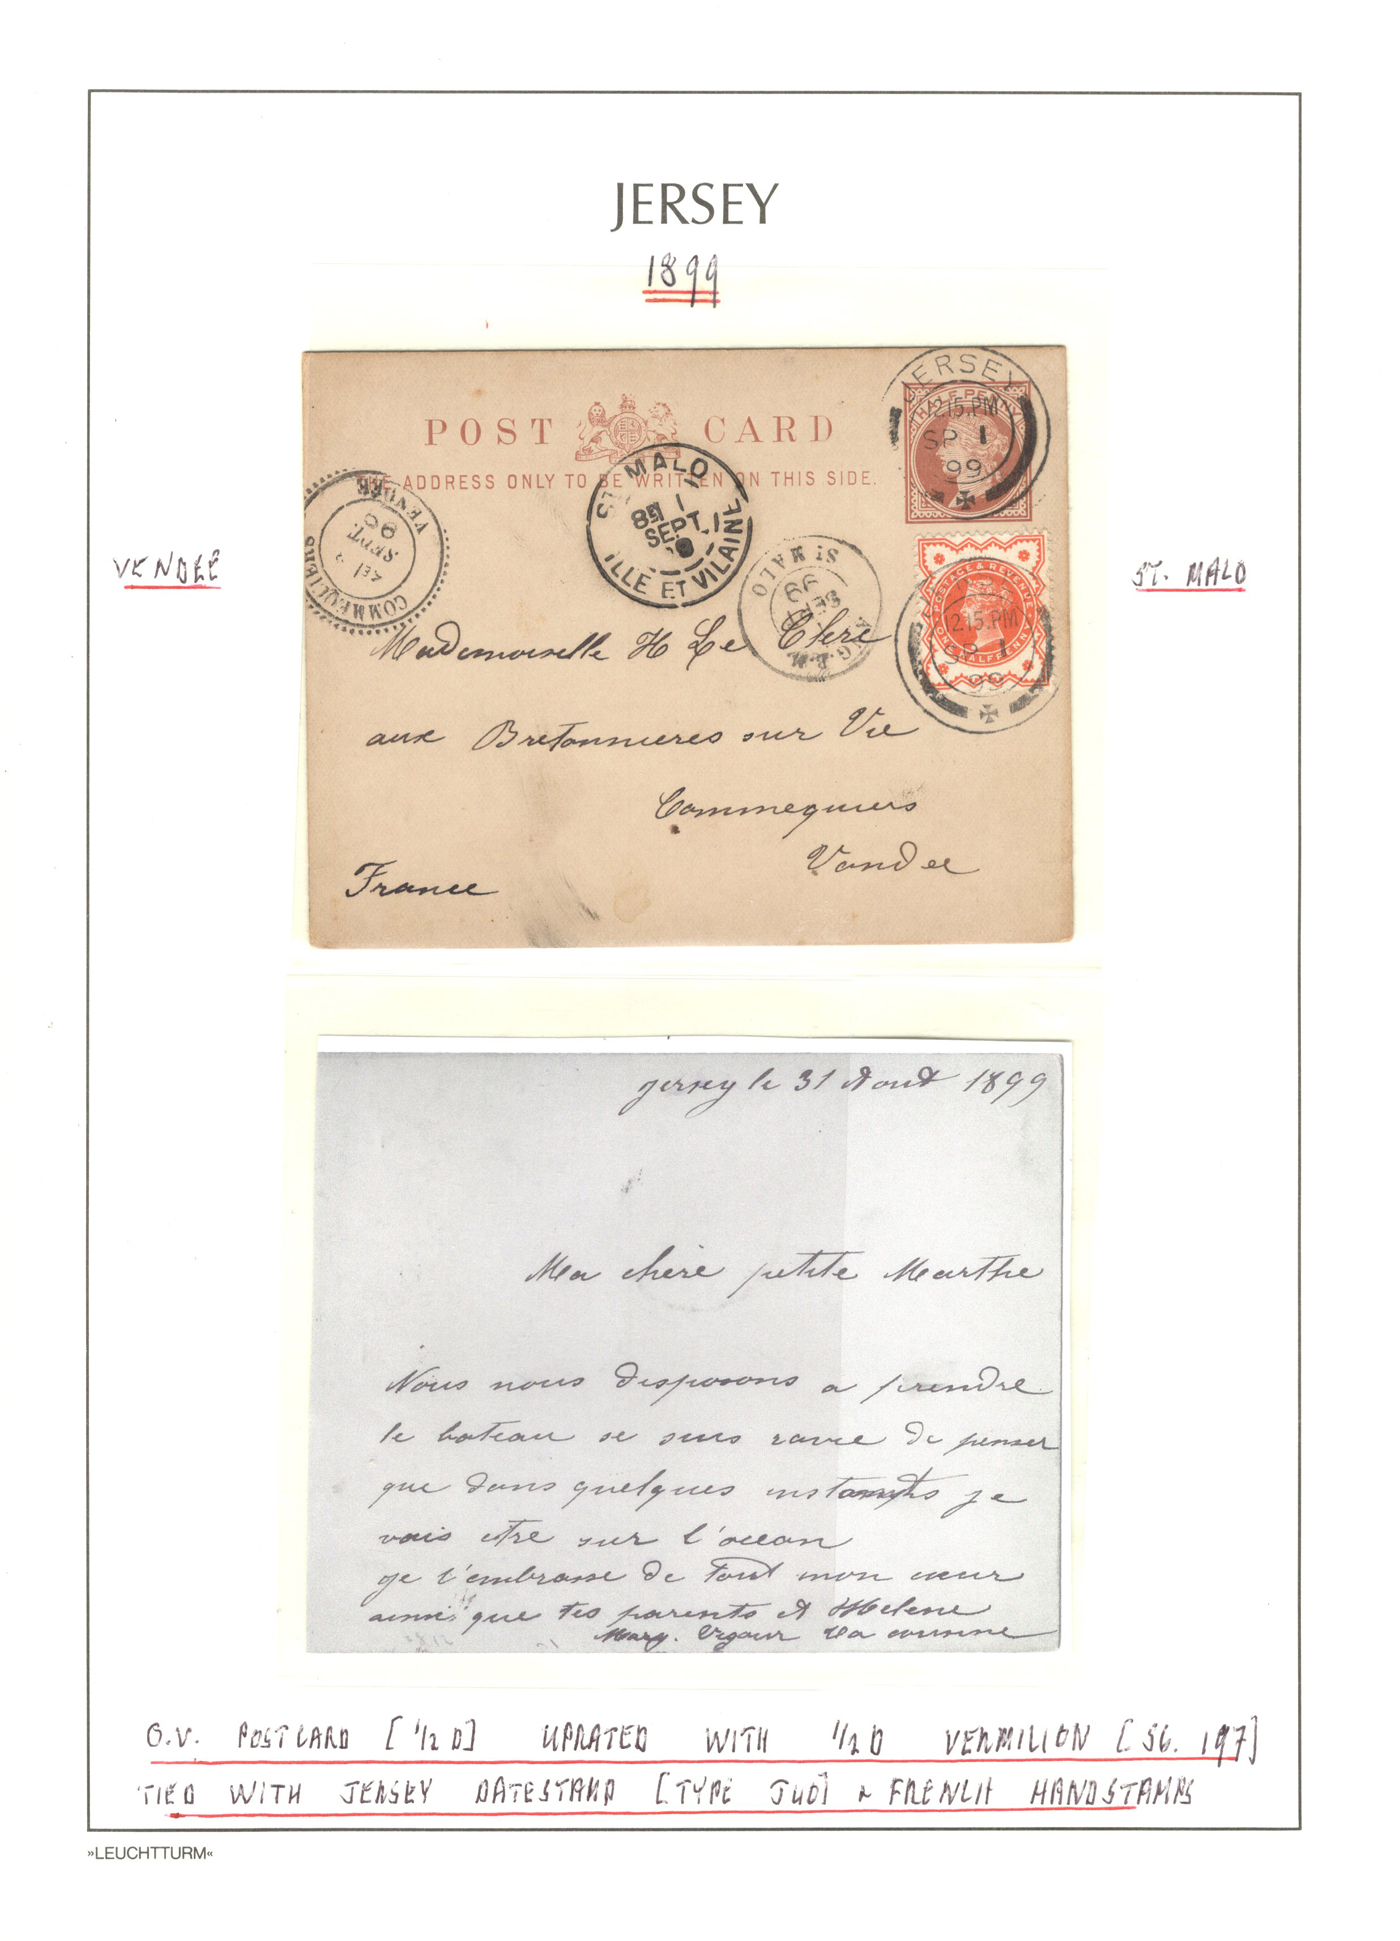 JERSEY
1899
POST CARD
THE ADDRESS ONLY TO BE WRITTEN ON THIS SIDE.
HALFPENNY
JERSEY
12.15.PM
SP 1
99
ST MALO
8E 1
SEPT.
ILLE ET VILAINE
COMMEQUIERS
VENDÉE
SEPT.
ST MALO
SEPT
99
POSTAGE & REVENUE
ONE HALFPENNY
12.15.PM
SP 1
99
VENDEÉ
ST. MALO
Mademoiselle H Le Clere
aux Bretonnieres sur Vie
Commequiers
Vandee
France
Jersey le 31 Aout 1899
Ma chère petite Marthe
Nous nous disposons a prendre
le bateau je suis ravie de penser
que dans quelques instants je
vais etre sur l'ocean
Je t'embrasse de tout mon cœur
ainsi que tes parents et Helene
Mary. ta cousine
Q.V. POSTCARD [1/2 D] UPRATED WITH 1/2 D VERMILION [SG. 197]
TIED WITH JERSEY DATESTAMP [TYPE J40] & FRENCH HANDSTAMPS
»LEUCHTTURM«